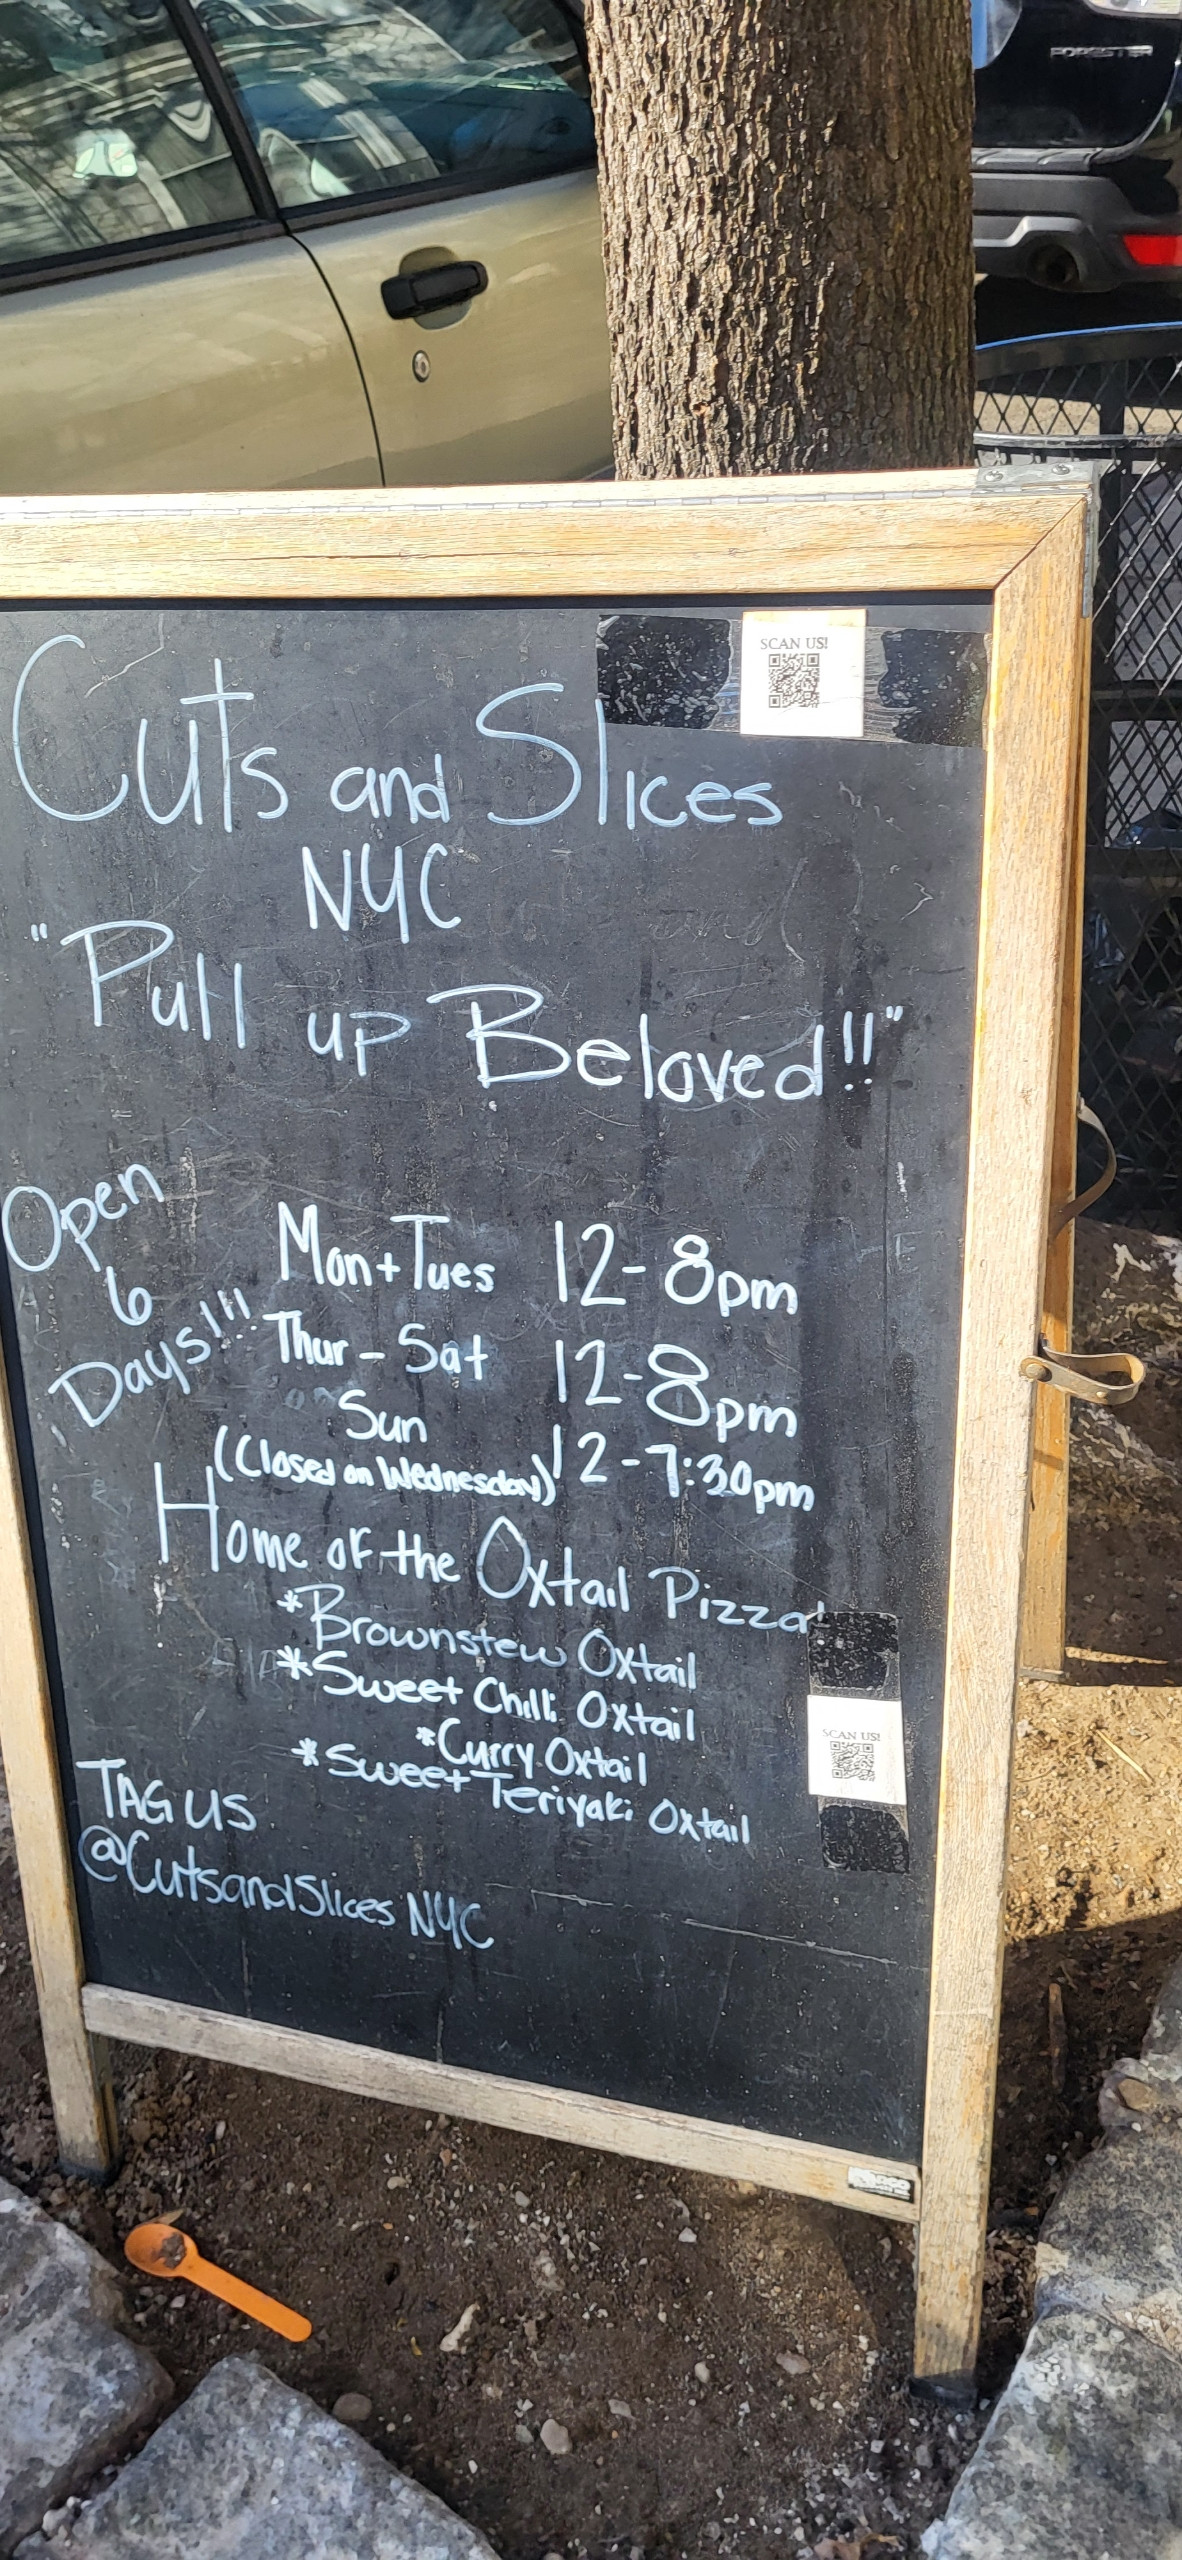 FORESTER
SCAN US!
Cuts and Slices
NYC
"Pull up Beloved!!"
Open
6
Days!!!
Mon+Tues 12-8pm
Thur-Sat 12-8pm
Sun 12-7:30pm
(Closed on Wednesday)
Home of the Oxtail Pizza!
*Brownstew Oxtail
*Sweet Chilli Oxtail
*Curry Oxtail
*Sweet Teriyaki Oxtail
SCAN US!
TAG US
@CutsandSlices NYC